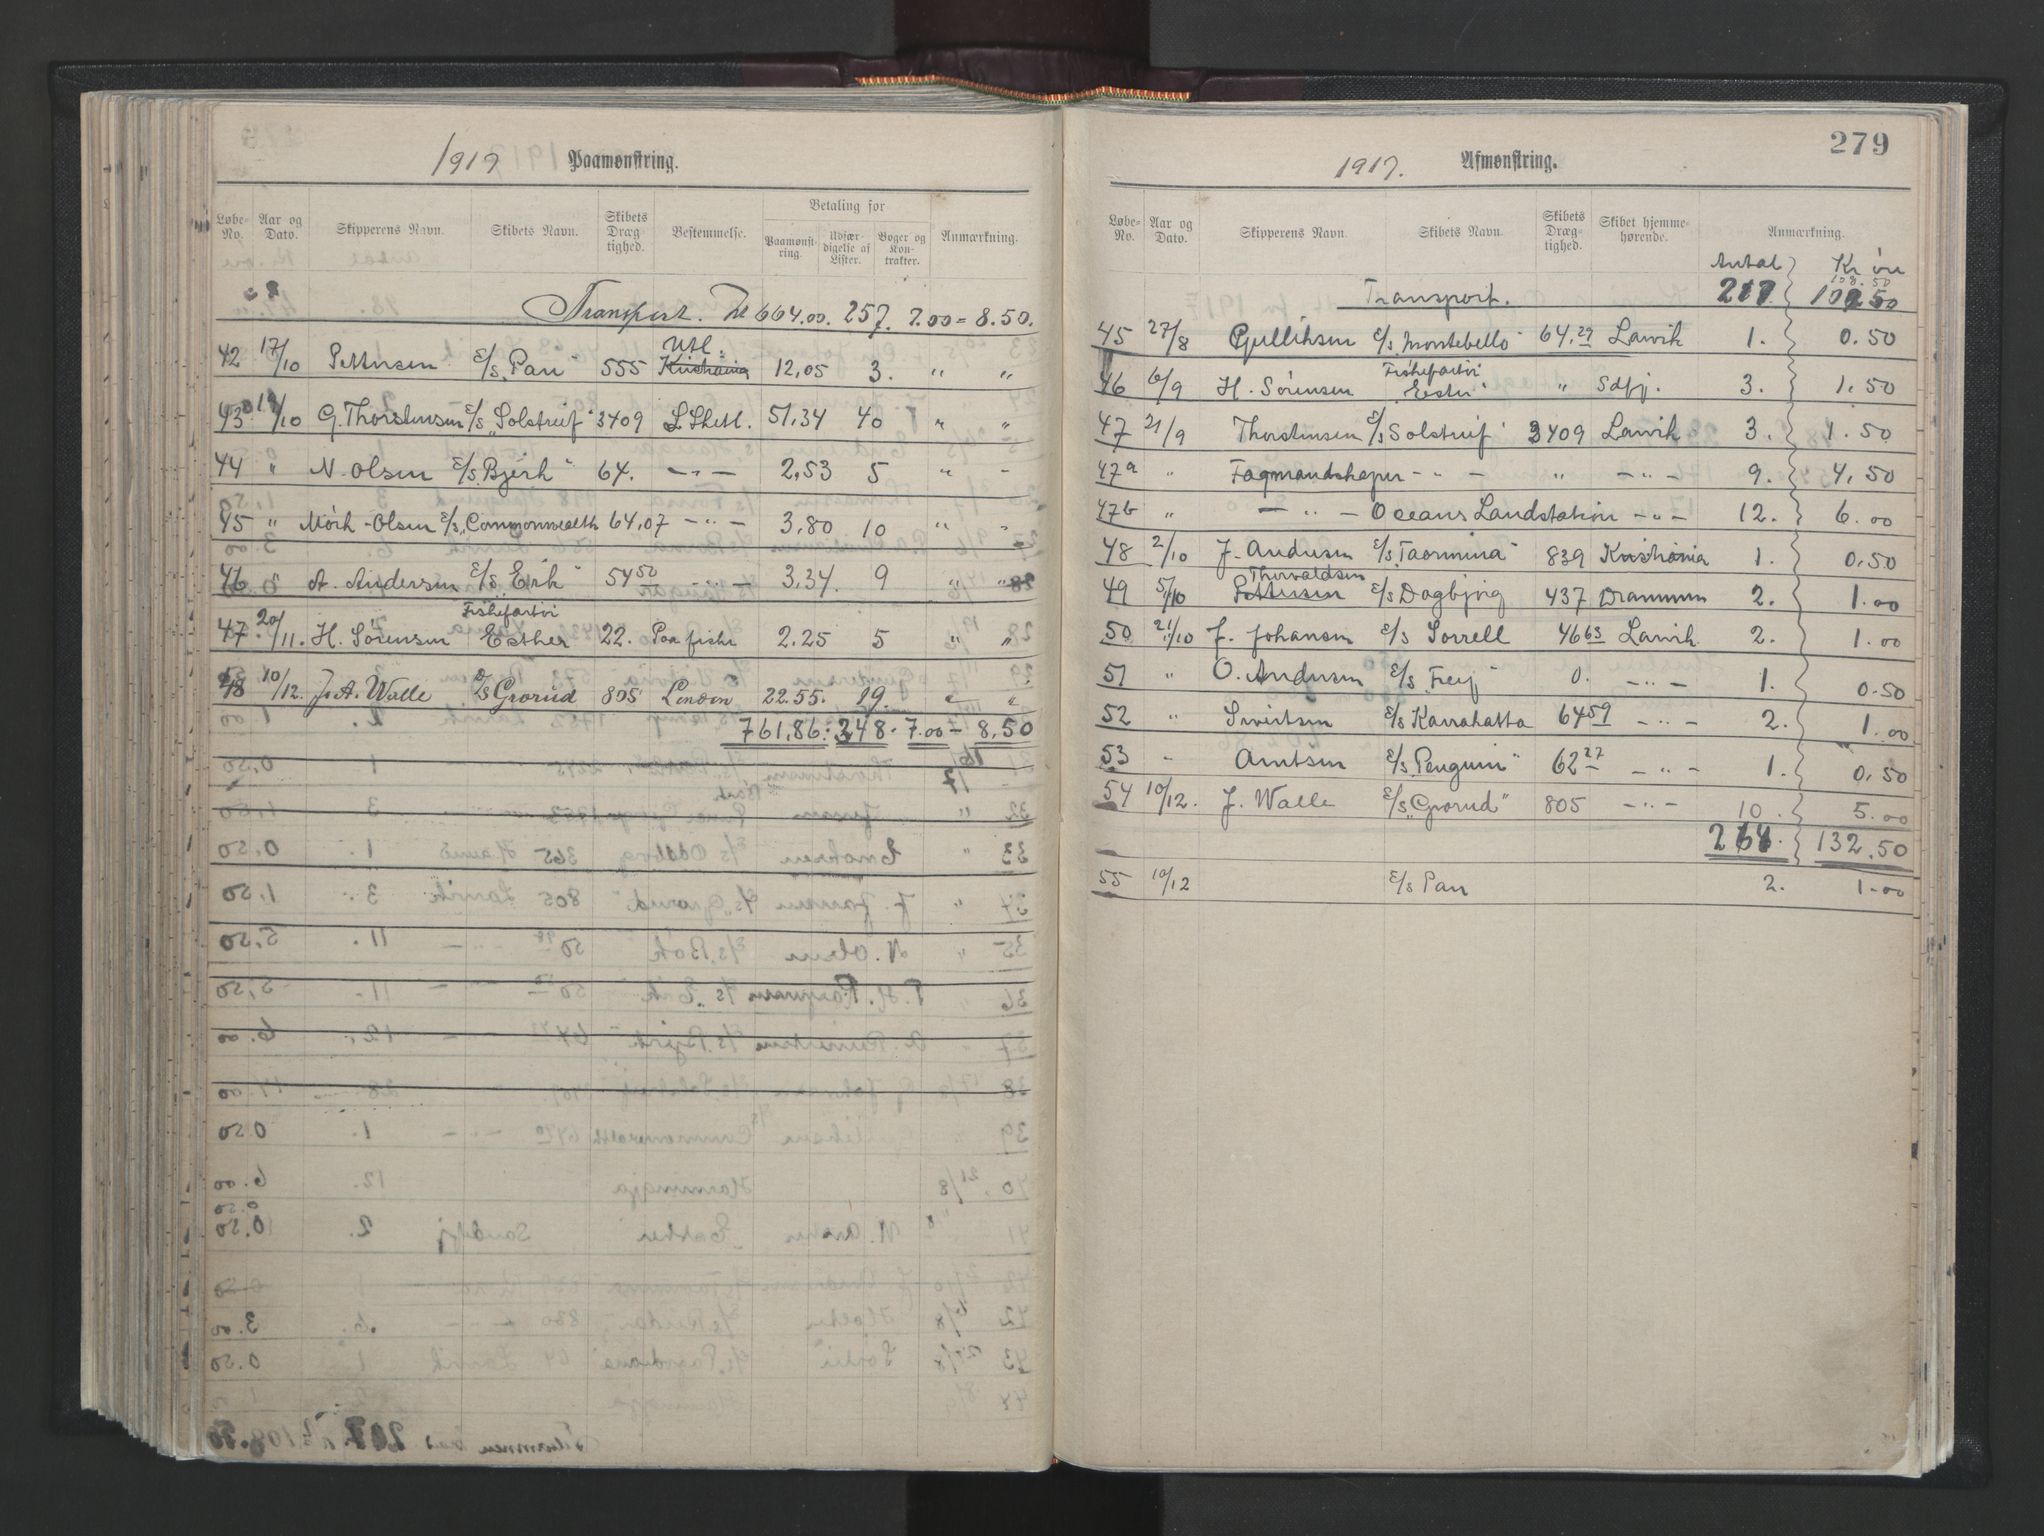 1919 Paamønstring.
Løbe-No. Aar og Dato. Skipperens Navn. Skibets Navn. Skibets Dræg-tighed. Bestemmelse. Betaling for Paamønst-ring. Udfær-digelse af Lister. Bøger og Kon-trakter. Anmærkning.
Transport. 664.00. 257. 7.00 = 8.50.
42 17/10 Pettersen E/S „Pan" 555 Utl. Kristiania 12,05 3. " "
43 19/10 G. Thorstensen E/S „Solstreif" 3409 S. Shetl. 51,34 40 " "
44 " N. Olsen E/S „Bjerk" 64. — " — 2,53 5 " -
45 " Mörk-Olsen E/S „Commonwealth 64,07 — " — 3,80 10 " "
46 " A. Andersen E/S „Erik" 54 50 - " - 3,34. 9 " "
47. 20/11. H. Sörensen Fiskefartøi Esther 22. Paa fiske 2.25 5 " "
48 10/12. J. A. Walle D/S Grorud 805 London 22.55. 19. " "
761,86: 348. 7.00 — 8,50
279
1917. Afmønstring.
Løbe-No. Aar og Dato. Skipperens Navn. Skibets Navn. Skibets Dræg-tighed. Skibet hjemme-hørende. Anmærkning.
Antal Kr øre
108.50
Transport. 217 108.50
45 27/8 Gulliksen E/S „Montebello" 64,29 Larvik 1. 0.50
46 6/9 H. Sörensen Fiskefartöi „Ester" " Sdfj. 3. 1.50
47 21/9 Thorstensen E/S Solstreif" 3409 Larvik 3. 1.50
47a " Fagmandskaper - " - " — " — 9. 4,50
47b " — " — Oceans Landstation — " — 12. 6.00
48 2/10 J. Andersen E/S „Taormina" 839 Kristiania 1. 0.50
49 5/10 Thorvaldsen Pettersen E/S Dagbjørg 437 Drammen 2. 1.00
50 21/10 J. Johansen E/S Sorrell 46 63 Larvik 2. 1.00
51 " O. Andersen E/S „Frey" 0. — " — 1. 0.50
52 " Sivertsen E/S Karrakatta 64 59 — " — 2. 1.00
53 " Arntsen E/S „Penguin" 62 27 — " — 1. 0.50
54 10/12. J. Walle E/S „Grorud" 805 — " — 10. 5.00
264. 132.50
55 10/12 E/S Pan 2. 1.00